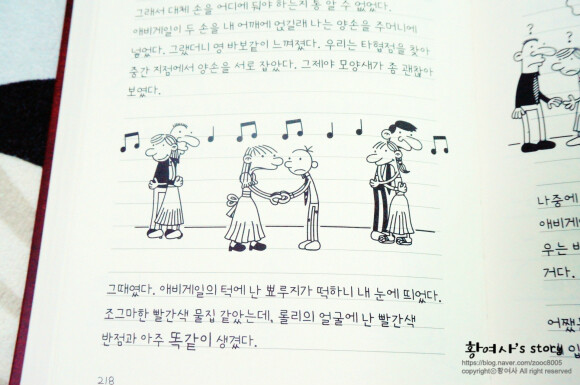 그래서 대체 손을 어디에 둬야 하는지 통 알 수 없었다.
애비게일이 두 손을 내 어깨에 얹길래 나는 양손을 주머니에
넣었다. 그랬더니 영 바보같이 느껴졌다. 우리는 타협점을 찾아
중간 지점에서 양손을 서로 잡았다. 그제야 모양새가 좀 괜찮아
보였다.
그때였다. 애비게일의 턱에 난 뾰루지가 떡하니 내 눈에 띄었다.
조그마한 빨간색 물집 같았는데, 롤리의 얼굴에 난 빨간색
반점과 아주 똑같이 생겼다.
218
? ?
나중에
애비게
우는 비
거다.
어쨌
입
황여사's story
https://blog.naver.com/zooc8005
copyrightⓒ황여사 All right reserved